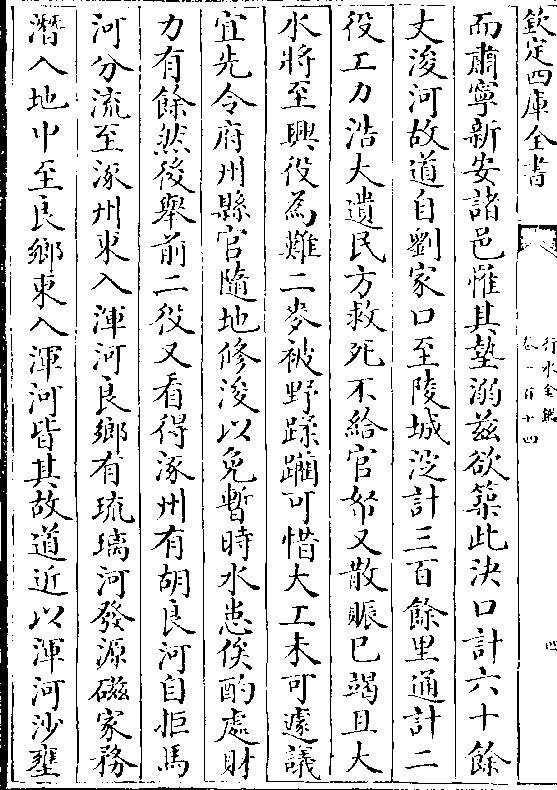 欽定四庫全書
行水金鑑
卷一百十四
四
而肅寧新安諸邑惟其墊溺兹欲築此決口計六十餘
丈浚河故道自劉家口至陵城淀計三百餘里通計二
役工力浩大遺民方救死不給官帑又散賑已竭且大
水將至興役為難二麥被野蹂躪可惜大工未可遽議
宜先令府州縣官隨地修浚以免暫時水患俟酌處財
力有餘然後舉前二役又看得涿州有胡良河自拒馬
河分流至涿州東入渾河良鄉有琉璃河發源磁家務
潛入地中至良鄉東入渾河皆其故道近以渾河沙壅